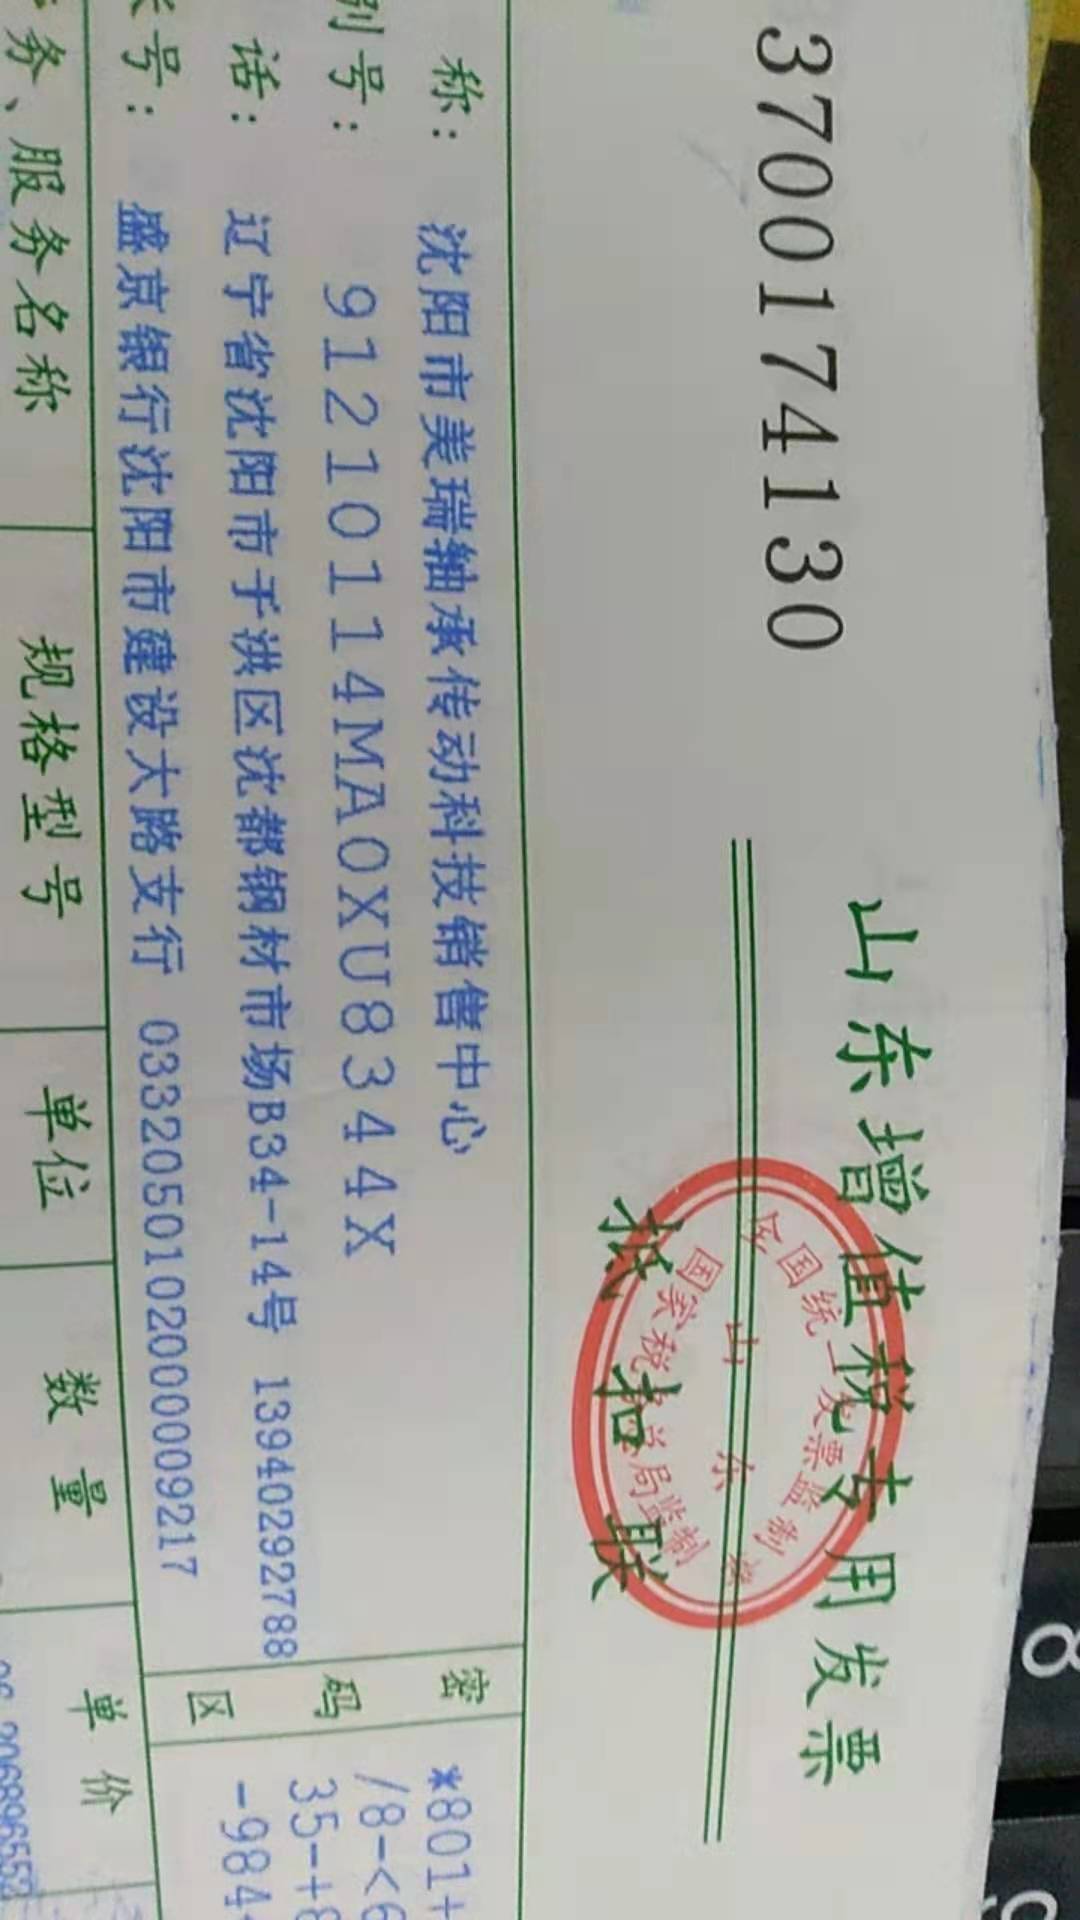 3700174130
山东增值税专用发票
全国统一发票监制章
山东
国家税务总局监制
抵扣联
称： 沈阳市美瑞轴承传动科技销售中心
别号： 91210114MA0XU8344X
话： 辽宁省沈阳市于洪区沈都钢材市场B34-14号 13940292788
号： 盛京银行沈阳市建设大路支行 0332050102000009217
密码区
*801+
/8-<6
35-+8
-984
务、服务名称 规格型号 单位 数量 单价
8